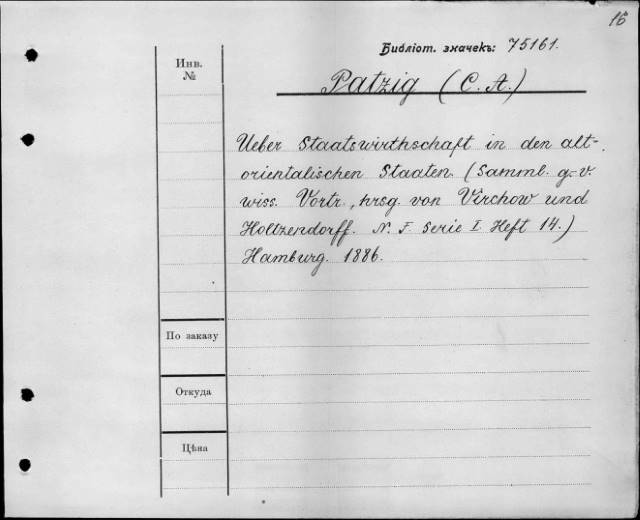 16
Библіот. значекъ: 75161.
Инв.
№
Patzig (C. A.)
Ueber Staatswirthschaft in den alt-
orientalischen Staaten. (Samml. g. v.
wiss. Vortr., hrsg. von Virchow und
Holtzendorff. N. F. Serie I. Heft 14.)
Hamburg. 1886.
По заказу
Откуда
Цѣна